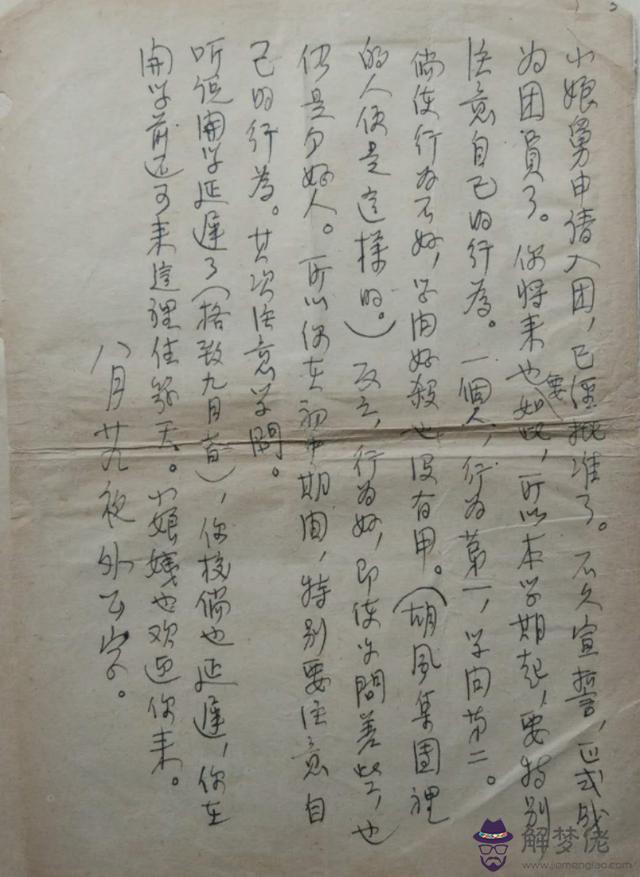 小娘舅申请入团，已經批准了。不久宣誓，正式成
为团員了。你将来也要如此，所以本学期起，要特别
注意自己的行為。一個人，行为第一，学问第二。
倘使行为不好，学问好殺也没有用。（胡风集团裡
的人便是這樣的。）反之，行为好，即使学問差些，也
仍是个好人。所以你在初中期间，特别要注意自
己的行為。其次注意学問。
听说開学延遲了（格致九月 ），你校倘也延遲，你在
開学前还可来這裡住幾天。小娘姨也欢迎你来。
八月廿九夜 外公字。
解梦佬
www.jiemenglao.com